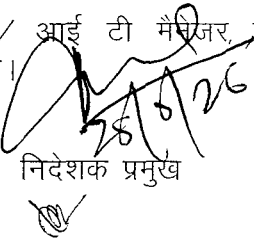 / आई टी मैनेजर,
।
28/6/26
निदेशक प्रमुख